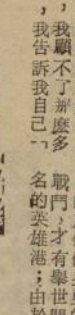 ，我顧不了那麼多
，我告訴我自己「
戰鬥，才有舉世聞
名的英雄港；由於